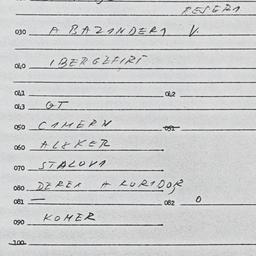 030 A BAZANDERA V.
040
041 042
043 GT
050 CAMERN 051
060 ALKKER
070 STALOVA
080 DEREK A KORIDOR
081 — 082 0
090 KOMER
100